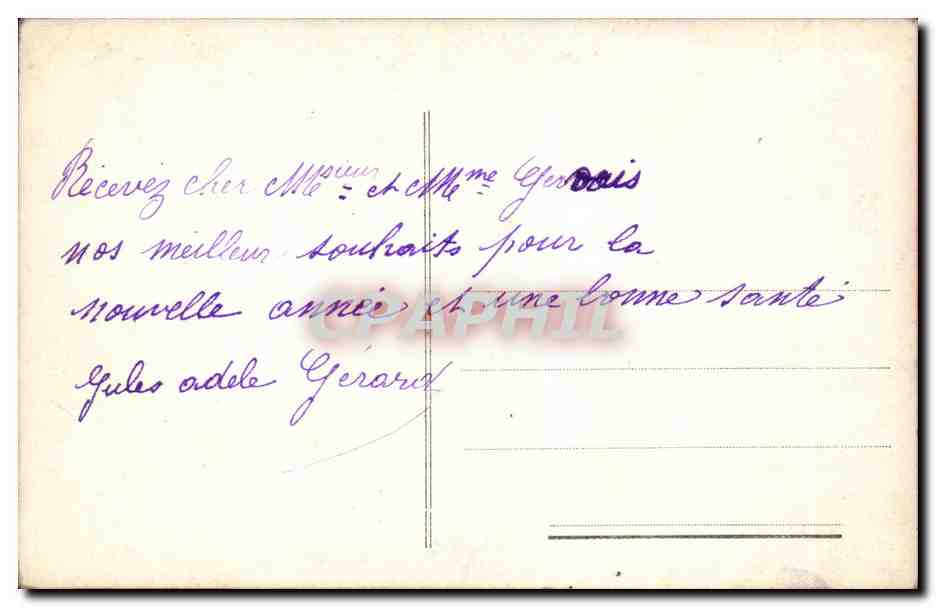 Récevez cher Mesieur et Mme Gervais
nos meilleur souhaits pour la
nouvelle année et une bonne santé
CPAPHIL
Jules adele Gérard